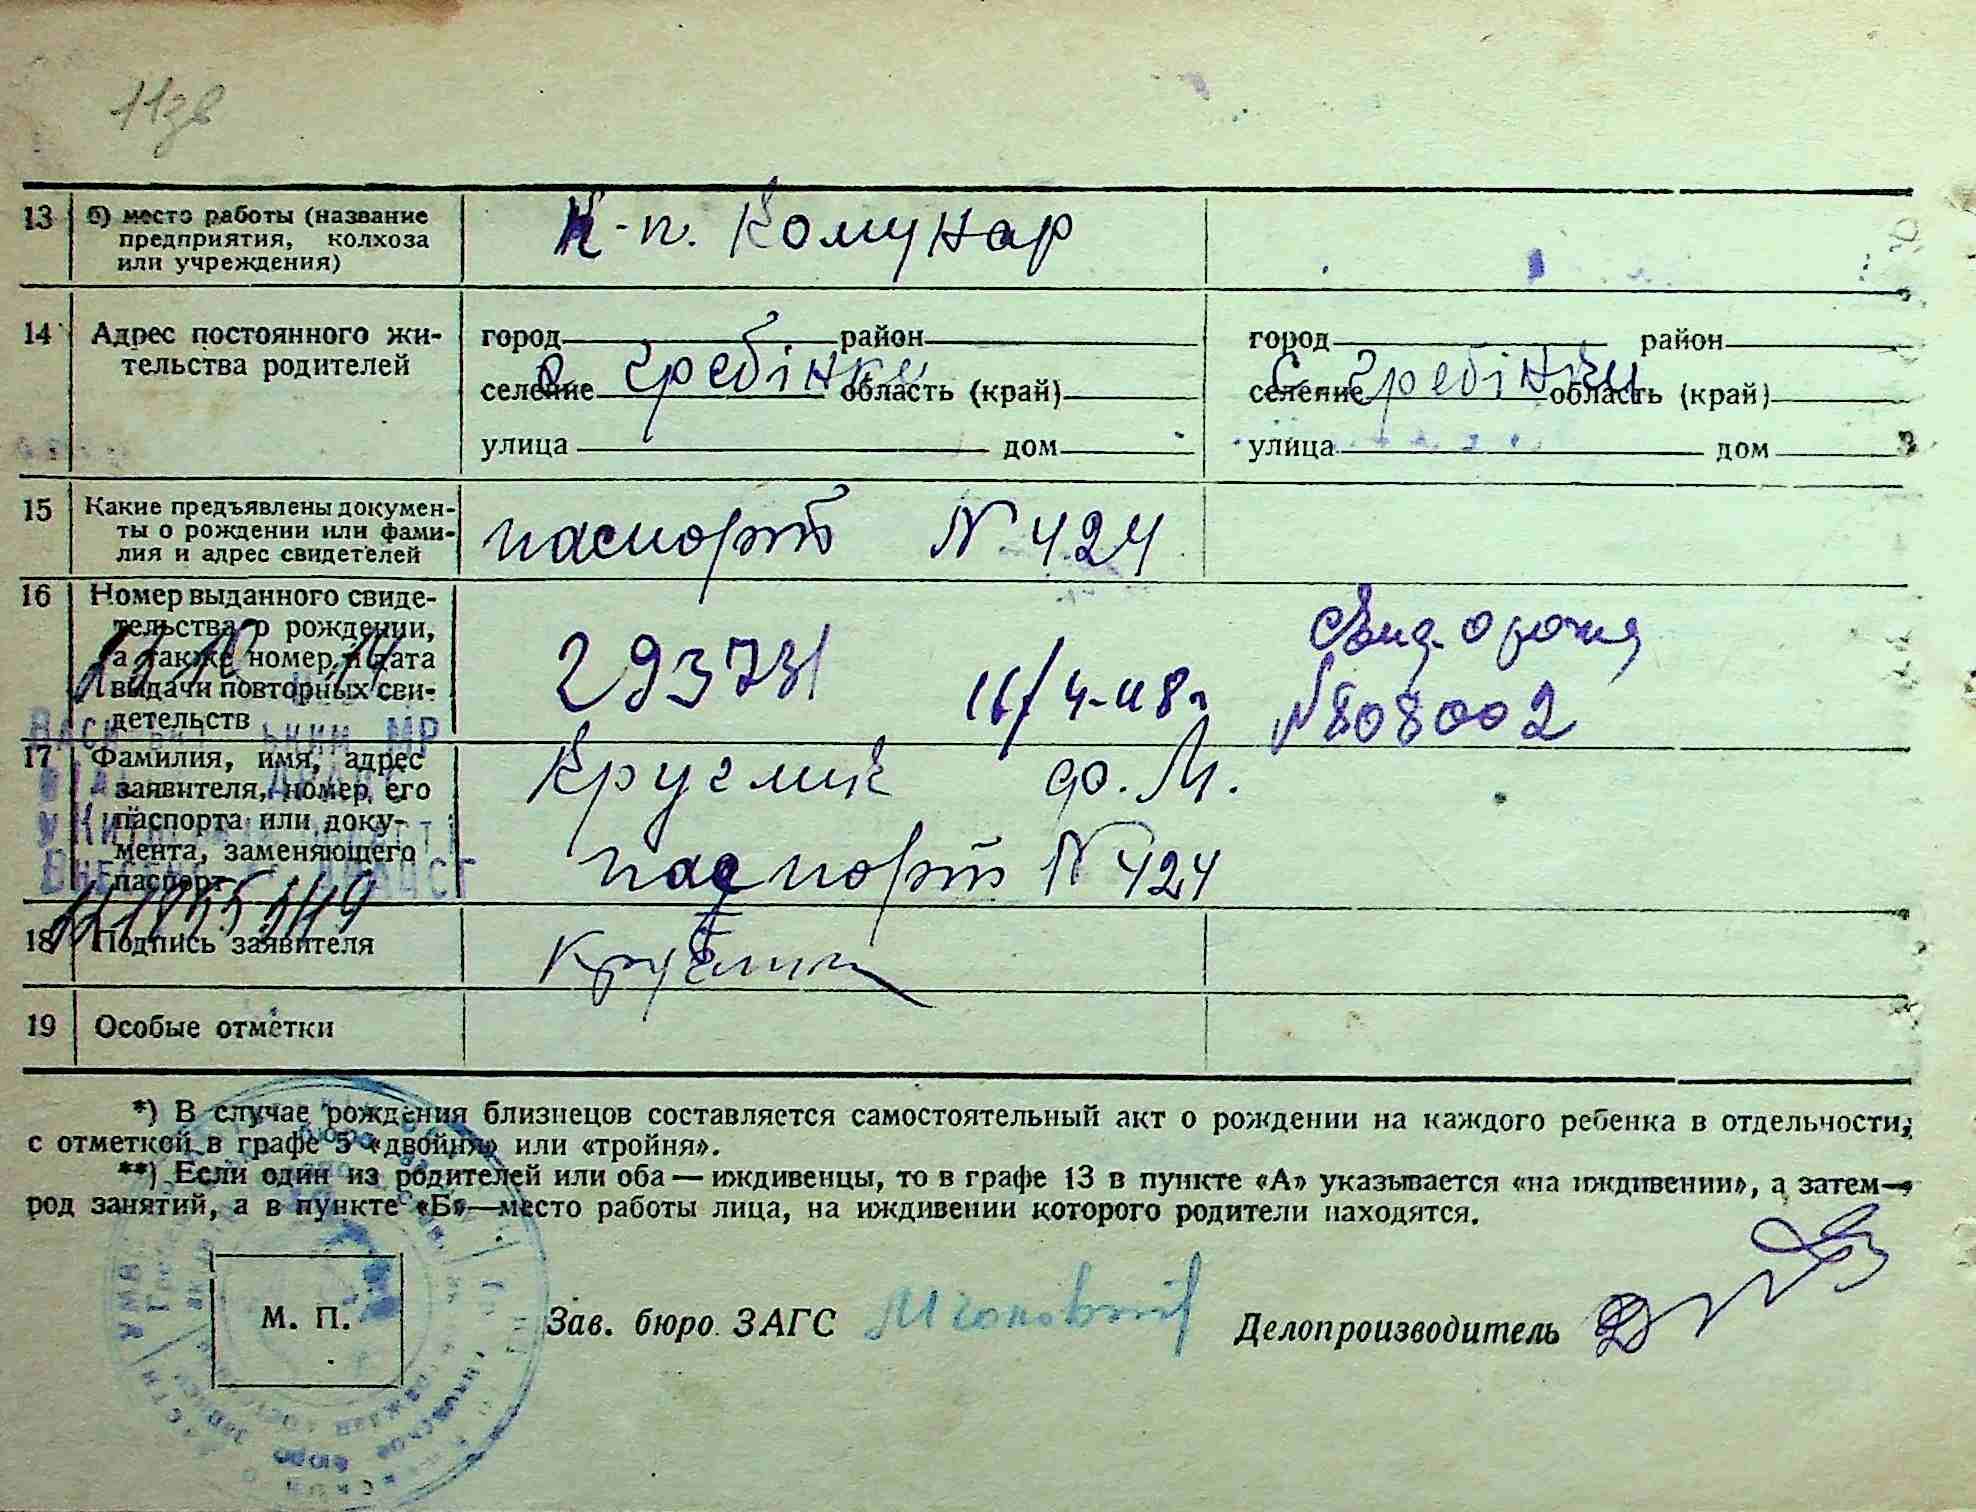 11зв
13 б) место работы (название предприятия, колхоза или учреждения) К-п. Комунар
14 Адрес постоянного жительства родителей
город район город район
селение с. Гребінки область (край) селение с. Гребінки область (край)
улица дом улица дом
15 Какие предъявлены документы о рождении или фамилия и адрес свидетелей паспорт N 424
16 Номер выданного свидетельства о рождении, а также номер и дата выдачи повторных свидетельств 293731 16/4-48г
N 808002
17 Фамилия, имя, адрес заявителя, номер его паспорта или документа, заменяющего паспорт Круглик Ф. М.
паспорт N 424
18 Подпись заявителя Круглик
19 Особые отметки
*) В случае рождения близнецов составляется самостоятельный акт о рождении на каждого ребенка в отдельности,
с отметкой в графе 5 «двойня» или «тройня».
**) Если один из родителей или оба — иждивенцы, то в графе 13 в пункте «А» указывается «на иждивении», а затем—
род занятий, а в пункте «Б»—место работы лица, на иждивении которого родители находятся.
М. П. Зав. бюро ЗАГС Делопроизводитель